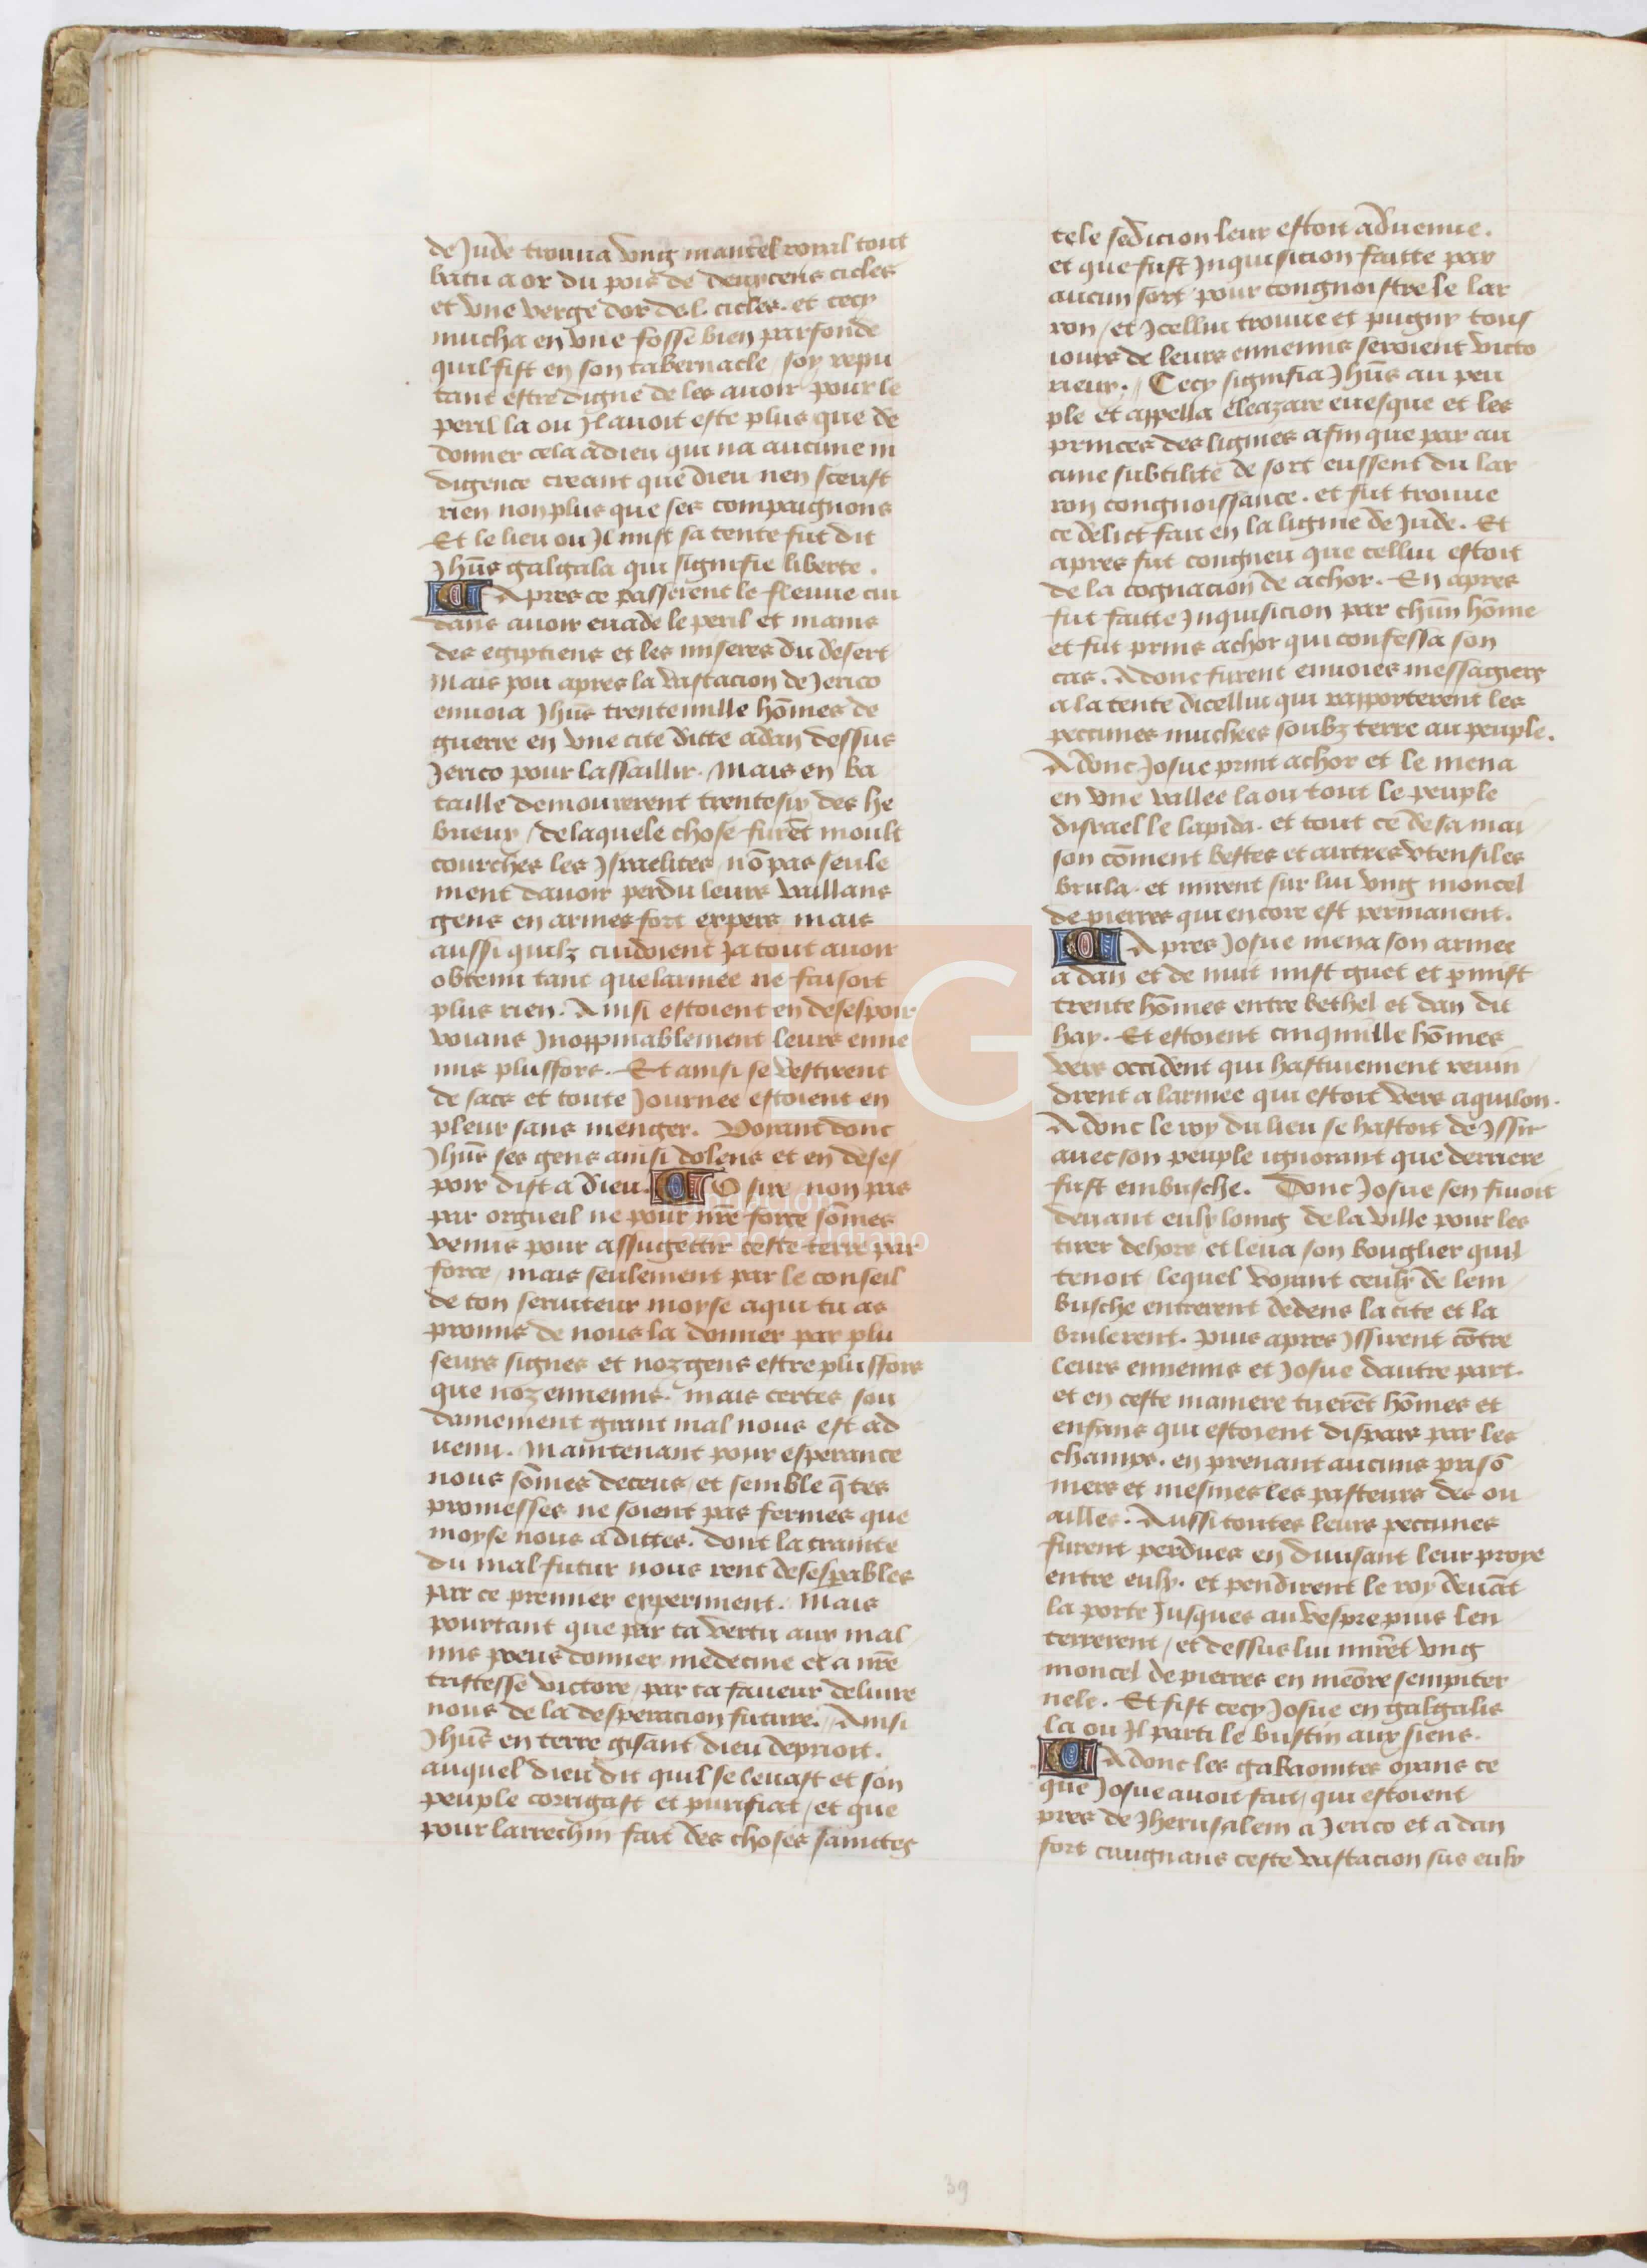 de Jude trouua vng mantel royal tout
batu a or du pois de deux cens cicles
et vne verge dor de .l. cicles. et cecy
mucha en vne fosse bien parfonde
quil fist en son tabernacle / soy repu
tant estre digne de les auoir pour le
peril la ou Jl auoit este plus que de
donner cela a dieu qui na aucune in
digence creant que dieu nen sceust
rien non plus que ses compaignons
Et le lieu ou Jl mist sa tente fut dit
Jhūs galgala qui signifie liberte .
Apres ce passerent le fleuue cui
dans auoir euade le peril et mains
des egiptiens et les miseres du desert
Mais pou apres la vastacion de Jerico
enuoia Jhūs trente mille hōmes de
guerre en vne cite ditte adan dessus
Jerico pour lassaillir. Mais en ba
taille demourerent trentesix des he
brieux / de laquele chose furēt moult
courches les Jsraelites / nō pas seule
ment dauoir perdu leurs vaillans
gens en armes fort expers mais
aussi quilz cuidoient Ja tout auoir
obtenu tant que larmee ne faisoit
plus rien. Ainsi estoient en desespoir
voians Jnoppinablement leurs enne
mis plus fors. Et ainsi se vestirent
de sacs et toute Journee estoient en
pleur sans menger. Voyant donc
Jhūs ses gens ainsi dolens et en deses
poir dist a dieu. O sire non pas
par orgueil ne pour nr̄e force sōmes
venus pour assugettir ceste terre par
force / mais seulement par le conseil
de ton seruiteur moyse a qui tu as
promis de nous la donner par plu
seurs signes et noz gens estre plus fors
que noz ennemis. mais certes sou
damement grant mal nous est ad
uenu. Maintenant pour esperance
nous sōmes deceus / et semble q̄ tes
promesses ne soient pas fermes que
moyse nous a dittes. dont la crainte
du mal futur nous rent desesperables
par ce premier experiment. Mais
pourtant que par ta vertu aux mal
mis peus donner medecine et a nr̄e
tristesse victore / par ta faueur deliure
nous de la desperacion future. Ainsi
Jhūs en terre gisant dieu deprioit.
auquel dieu dit quil se leuast et son
peuple corrigast et purifiat / et que
pour larrechin fait des choses sainctes
tele sedicion leur estoit aduenue.
et que fust Jnquisicion faitte par
aucun sort pour congnoistre le lar
ron / et Jcellui trouue et pugny tous
iours de leurs ennemis seroient victo
rieux. Cecy signifia Jhūs au peu
ple et appella eleazare euesque et les
princes des lignies afin que par au
cune subtilite de sort eussent du lar
ron congnoissance. et fut trouue
ce delict fait en la lignie de Jude. Et
apres fut congneu que cellui estoit
de la cognacion de achor. En apres
fut faitte Jnquisicion par chūn hōme
et fut prins achor qui confessa son
cas. Adonc furent enuoies messagiers
a la tente dicellui qui rapporterent les
peccunes muchees soubz terre au peuple.
Adonc Josue print achor et le mena
en vne vallee la ou tout le peuple
disrael le lapida. et tout ce de sa mai
son cōment bestes et autres vtensiles
brula. et mirent sur lui vng moncel
de pierres qui encore est permanent.
Apres Josue mena son armee
a dan et de nuit mist guet et p̄mist
trente hōmes entre bethel et dan dit
hay. Et estoient cinq mille hōmes
vers occident qui hastiuement reuin
drent a larmee qui estoit vers aquilon.
Adonc le roy du lieu se hastoit de Jssir
auec son peuple ignorant que derriere
fust embusche. Donc Josue sen fuioit
deuant eulx loing de la ville pour les
tirer dehors et leua son bouglier quil
tenoit / lequel voyant ceulx de lem
busche entrerent dedens la cite et la
brulerent. puis apres Jssirent cōtre
leurs ennemis et Josue dautre part.
et en ceste maniere tuerēt hōmes et
enfans qui estoient dispars par les
champs. en prenant aucuns prisō
niers et mesmes les pasteurs des ou
ailles. Aussi toutes leurs peccunes
furent perdues en diuisant leur proye
entre eulx. et pendirent le roy deuāt
la porte Jusques au vespre puis len
terrerent / et dessus lui mirēt vng
moncel de pierres en meōre sempiter
nele. Et fist cecy Josue en galgalis
la ou Jl parti le bustin aux siens.
Adonc les gabaonites oyans ce
que Josue auoit fait / qui estoient
pres de Jherusalem a Jerico et a dan
fort craignans ceste vastacion sus eulx
39
LG
Fundación
Lázaro Galdiano